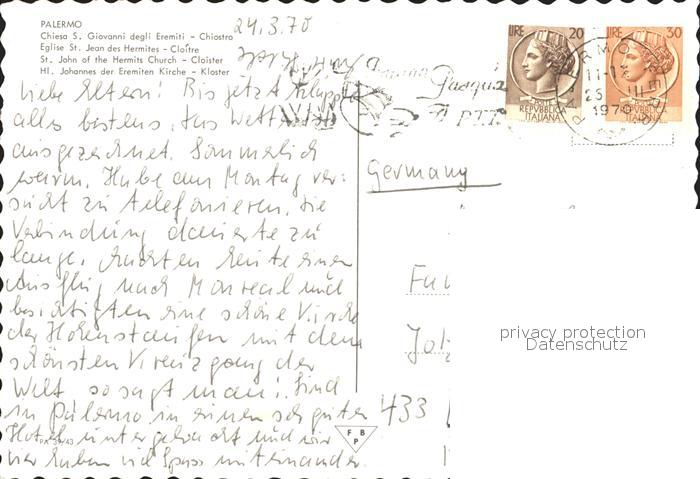 PALERMO
Chiesa S. Giovanni degli Eremiti - Chiostro
Eglise St. Jean des Hermites - Cloître
St. John of the Hermits Church - Cloister
Hl. Johannes der Eremiten Kirche - Kloster
24.3.70
LIRE 20
LIRE 30
REPUBBLICA
ITALIANA
REPUBBLICA
ITALIANA
PALERMO
11-12
1970
Pasqua
P.T.T.
Liebe Eltern! Bis jetzt klappte
alles bestens. Das Wetter ist
ausgezeichnet. Sommerlich
warm. Habe am Montag ver-
sucht zu telefonieren. Die
Verbindung dauerte zu
lange. Machten heute einen
Ausflug nach Monreal und
besichtigten eine schöne Kirche
der Hohenstaufen mit dem
schönsten Kreuzgang der
Welt so sagt man! Sind
in Palermo in einem sehr guten
Hotel untergebracht und wir
vier haben viel Spass miteinander.
Germany
433
PA 39/43
F B P
privacy protection
Datenschutz